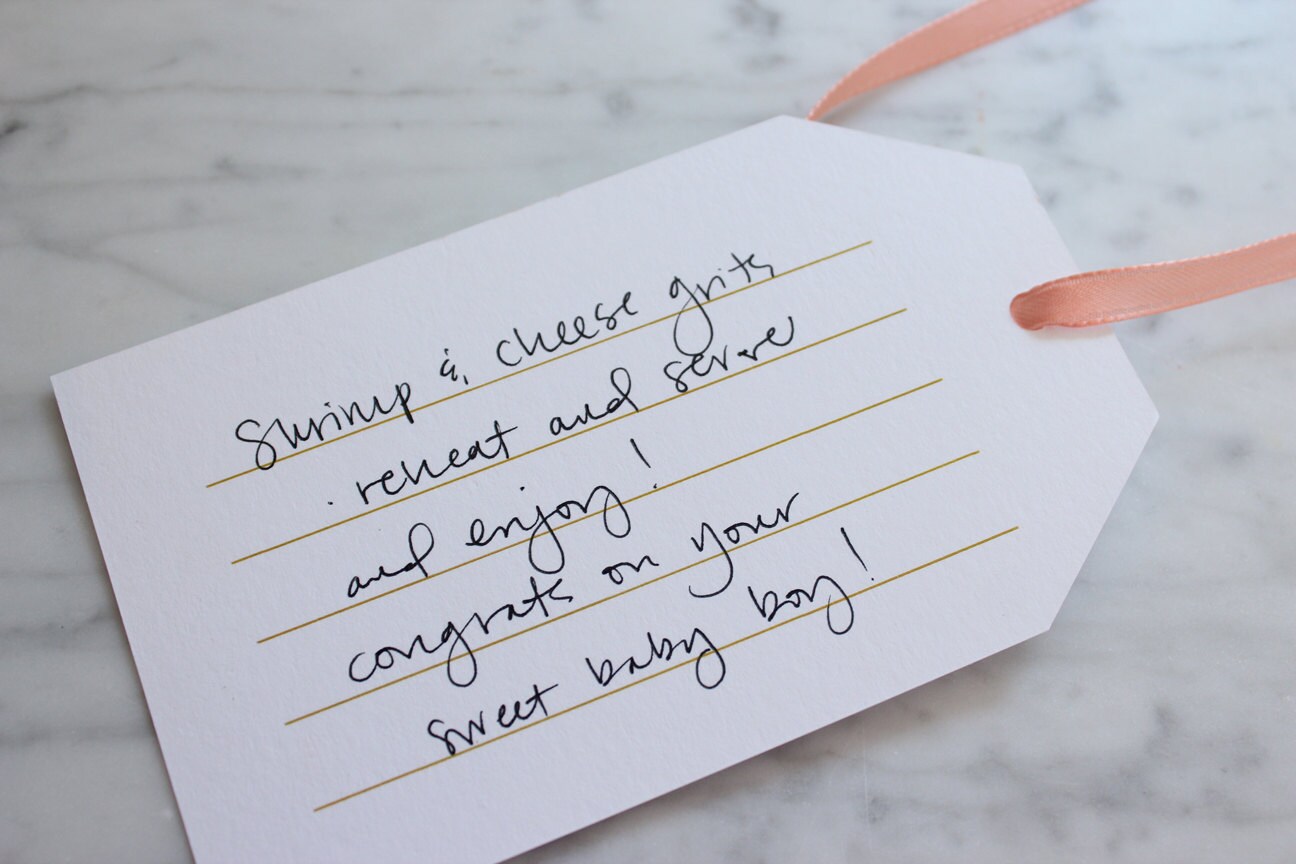 Shrimp & cheese grits
. reheat and serve
and enjoy!
congrats on your
sweet baby boy!